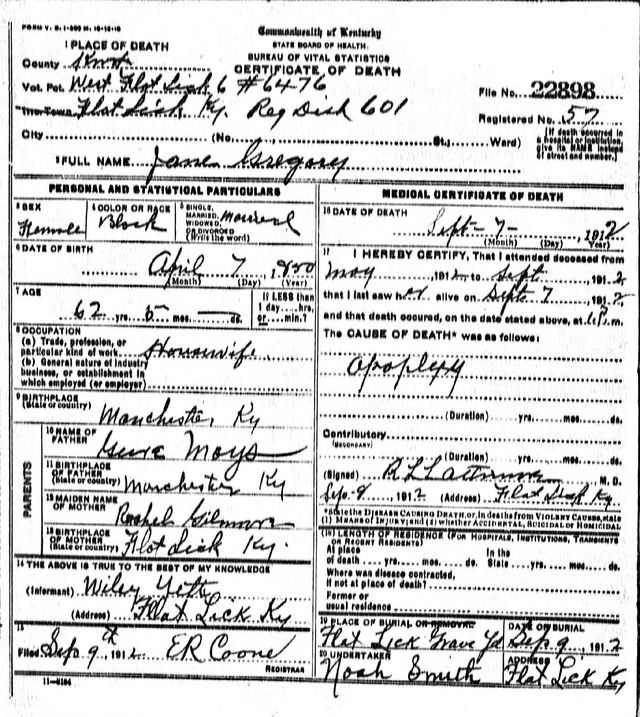 FORM V. S. 1-
Commonwealth of Kentucky
STATE BOARD OF HEALTH.
BUREAU OF VITAL STATISTICS
CERTIFICATE OF DEATH
1 PLACE OF DEATH
County Knox
Vot. Pct. West Flat Lick 6 #6476
File No. 22898
Inc. Town Flat Lick, Ky. Reg Dist 601
Registered No. 57
City (No. St.; Ward)
[If death occurred in a hospital or institution, give its NAME instead of street and number.]
2 FULL NAME Jane Gregory
PERSONAL AND STATISTICAL PARTICULARS
3 SEX
Female
4 COLOR OR RACE
Black
5 SINGLE, MARRIED, WIDOWED, OR DIVORCED (Write the word)
Married
6 DATE OF BIRTH
April 7, 1850
(Month) (Day) (Year)
7 AGE
62 yrs. 5 mos. — ds.
If LESS than 1 day....hrs. or....min.?
8 OCCUPATION
(a) Trade, profession, or particular kind of work Housewife
(b) General nature of industry business, or establishment in which employed (or employer)
9 BIRTHPLACE
(State or country) Manchester Ky
PARENTS
10 NAME OF FATHER Mays
11 BIRTHPLACE OF FATHER
(State or country) Manchester Ky
12 MAIDEN NAME OF MOTHER Rachel Gilmore
13 BIRTHPLACE OF MOTHER
(State or country) Flat Lick Ky.
14 THE ABOVE IS TRUE TO THE BEST OF MY KNOWLEDGE
(Informant) Wiley
(Address) Flat Lick Ky
15
Filed Sep. 9th 1912 ER Coone
REGISTRAR
11-
MEDICAL CERTIFICATE OF DEATH
16 DATE OF DEATH
Sept - 7 - 1912
(Month) (Day) (Year)
17 I HEREBY CERTIFY, That I attended deceased from
May, 1912, to Sept, 1912,
that I last saw her alive on Sept. 7, 1912,
and that death occured, on the date stated above, at P.m.
The CAUSE OF DEATH* was as follows:
Apoplexy
(Duration) yrs. mos. ds.
Contributory
(SECONDARY)
(Duration) yrs. mos. ds.
(Signed) M. D.
Sep. 9, 1912 (Address) Flat Lick Ky
*State the DISEASE CAUSING DEATH, or, in deaths from VIOLENT CAUSES, state (1) MEANS OF INJURY; and (2) whether ACCIDENTAL, SUICIDAL or HOMICIDAL.
18 LENGTH OF RESIDENCE (FOR HOSPITALS, INSTITUTIONS, TRANSIENTS OR RECENT RESIDENTS)
At place of death yrs. mos. ds. In the State yrs. mos. ds.
Where was disease contracted, if not at place of death?
Former or usual residence
19 PLACE OF BURIAL OR REMOVAL
Flat Lick Grave Yd
DATE OF BURIAL
Sep. 9, 1912
20 UNDERTAKER
Noah Smith
ADDRESS
Flat Lick Ky